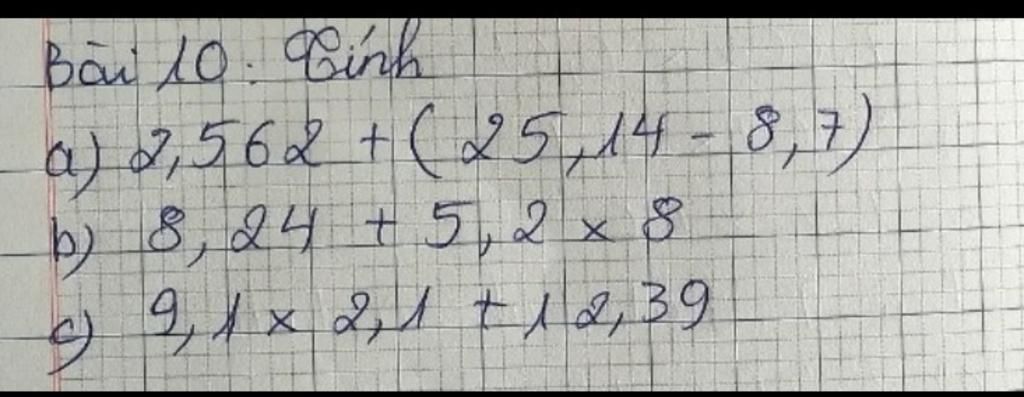 Bài 10: Tính
a) 2,562 + ( 25,14 - 8,7)
b) 8,24 + 5,2 x 8
c) 9,1 x 2,1 + 12,39